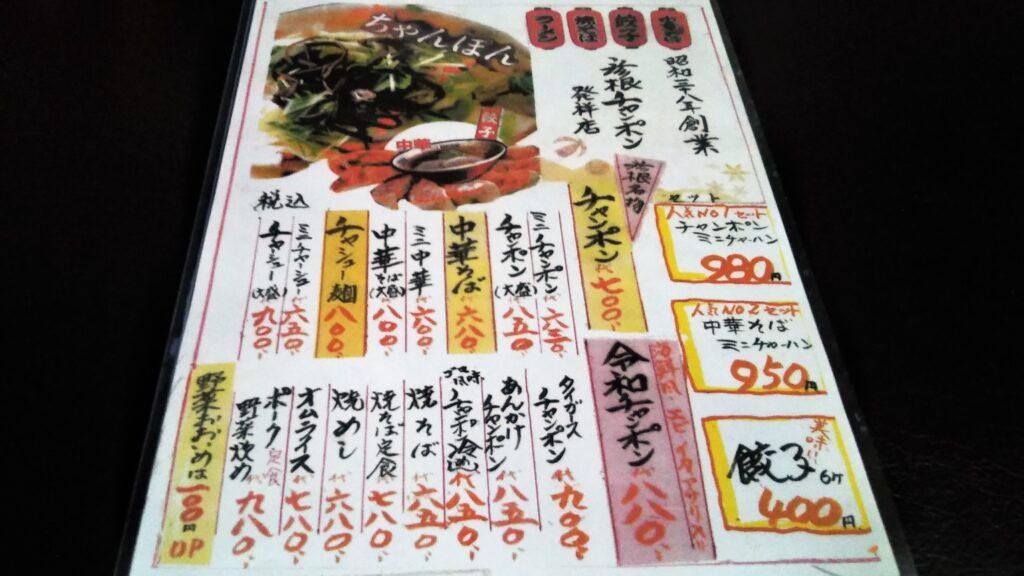 ちゃんぽん
ラーメン
焼そば
餃子
昭和三十八年創業
彦根チャンポン
発祥店
餃子
中華
彦根名物
チャンポン 代 七〇〇、
ミニチャンポン 代 六三〇、
チャンポン(大盛) 代 八五〇、
中華そば 代 六八〇、
ミニ中華 代 六〇〇、
中華そば(大盛) 代 八〇〇、
チャシュー麺 八〇〇、
ミニチャーシュー 六五〇、
チャシュー(大盛) 九〇〇、
税込
セット
人気NO1セット
チャンポン
ミニチャーハン
980円
人気NO2セット
中華そば
ミニチャーハン
950円
美味!!
餃子 6ケ
400円
海鮮風・エビ イカ アサリ入り
令和チャンポン 代 八八〇、
タイガースチャンポン 代 九〇〇、
あんかけチャンポン 代 八五〇、
焼そば 代 六五〇、
焼そば定食 代 七八〇、
焼めし 代 六八〇、
オムライス 代 七八〇、
ポーク野菜炒め 定食 九八〇、
野菜おおいめは 一〇〇円UP